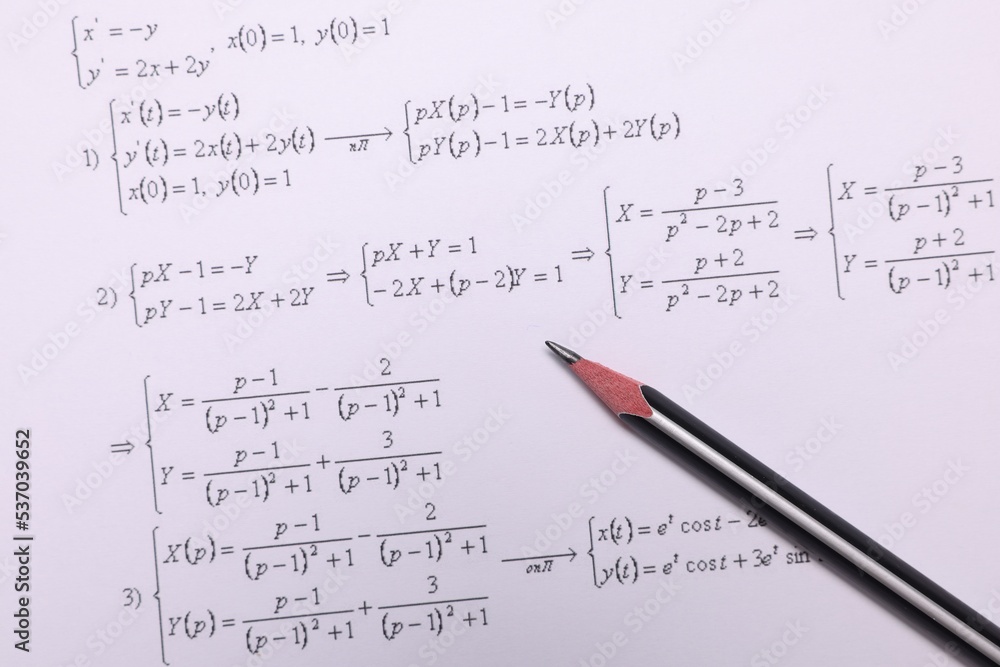 {x' = −y
{y' = 2x + 2y , x(0) = 1, y(0) = 1
1) {x'(t) = −y(t)
{y'(t) = 2x(t) + 2y(t)
{x(0) = 1, y(0) = 1
→ пЛ
{pX(p) − 1 = −Y(p)
{pY(p) − 1 = 2X(p) + 2Y(p)
2) {pX − 1 = −Y
{pY − 1 = 2X + 2Y
⇒ {pX + Y = 1
{−2X + (p − 2)Y = 1
⇒ {X = (p − 3) / (p² − 2p + 2)
{Y = (p + 2) / (p² − 2p + 2)
⇒ {X = (p − 3) / ((p − 1)² + 1)
{Y = (p + 2) / ((p − 1)² + 1)
⇒ {X = (p − 1) / ((p − 1)² + 1) − 2 / ((p − 1)² + 1)
{Y = (p − 1) / ((p − 1)² + 1) + 3 / ((p − 1)² + 1)
3) {X(p) = (p − 1) / ((p − 1)² + 1) − 2 / ((p − 1)² + 1)
{Y(p) = (p − 1) / ((p − 1)² + 1) + 3 / ((p − 1)² + 1)
→ опЛ
{x(t) = eᵗ cos t − 2e
{y(t) = eᵗ cos t + 3eᵗ sin
Adobe Stock | #537039652